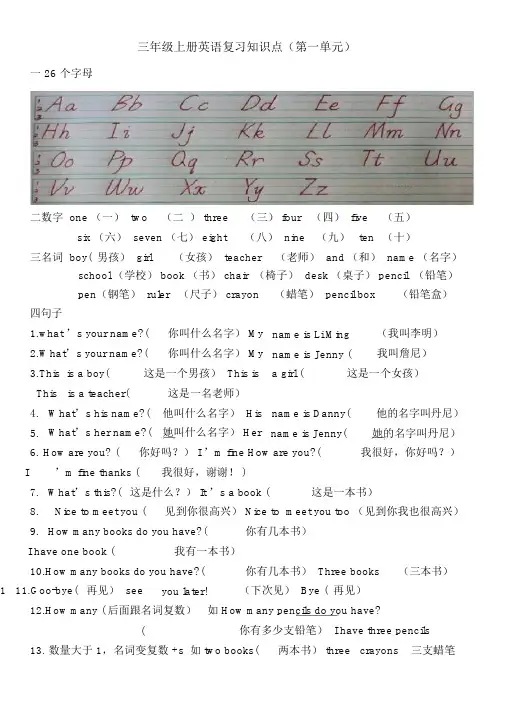 三年级上册英语复习知识点（第一单元）
一 26 个字母
Aa Bb Cc Dd Ee Ff Gg
Hh Ii Jj Kk Ll Mm Nn
Oo Pp Qq Rr Ss Tt Uu
Vv Ww Xx Yy Zz
二数字 one （一） two （二 ） three （三） four （四） five （五）
six （六） seven （七） eight （八） nine （九） ten （十）
三名词 boy( 男孩） girl （女孩） teacher （老师） and （和） name （名字）
school （学校） book （书） chair （椅子） desk （桌子） pencil （铅笔）
pen（钢笔） ruler （尺子） crayon （蜡笔） pencilbox （铅笔盒）
四句子
1.what’s your name? ( 你叫什么名字） My name is LiMing （我叫李明）
2.What’s your name? ( 你叫什么名字） My name is Jenny ( 我叫詹尼）
3.This is a boy( 这是一个男孩） This is a girl( 这是一个女孩）
This is a teacher( 这是一名老师）
4. What’s his name? ( 他叫什么名字） His name is Danny( 他的名字叫丹尼）
5. What’s her name? ( 她叫什么名字） Her name is Jenny( 她的名字叫丹尼）
6. How are you? ( 你好吗？） I’m fine How are you? ( 我很好，你好吗？）
I ’m fine thanks ( 我很好，谢谢！ )
7. What’s this? ( 这是什么？） It’s a book ( 这是一本书）
8. Nice to meet you ( 见到你很高兴） Nice to meet you too （见到你我也很高兴）
9. How many books do you have? ( 你有几本书）
Ihave one book ( 我有一本书）
10.How many books do you have? ( 你有几本书） Three books （三本书）
1 11.Goo-bye( 再见） see you later! （下次见） Bye ( 再见）
12.How many ( 后面跟名词复数） 如 How many pencils do you have?
( 你有多少支铅笔） Ihave three pencils
13. 数量大于 1，名词变复数 +s 如 two books( 两本书） three crayons 三支蜡笔